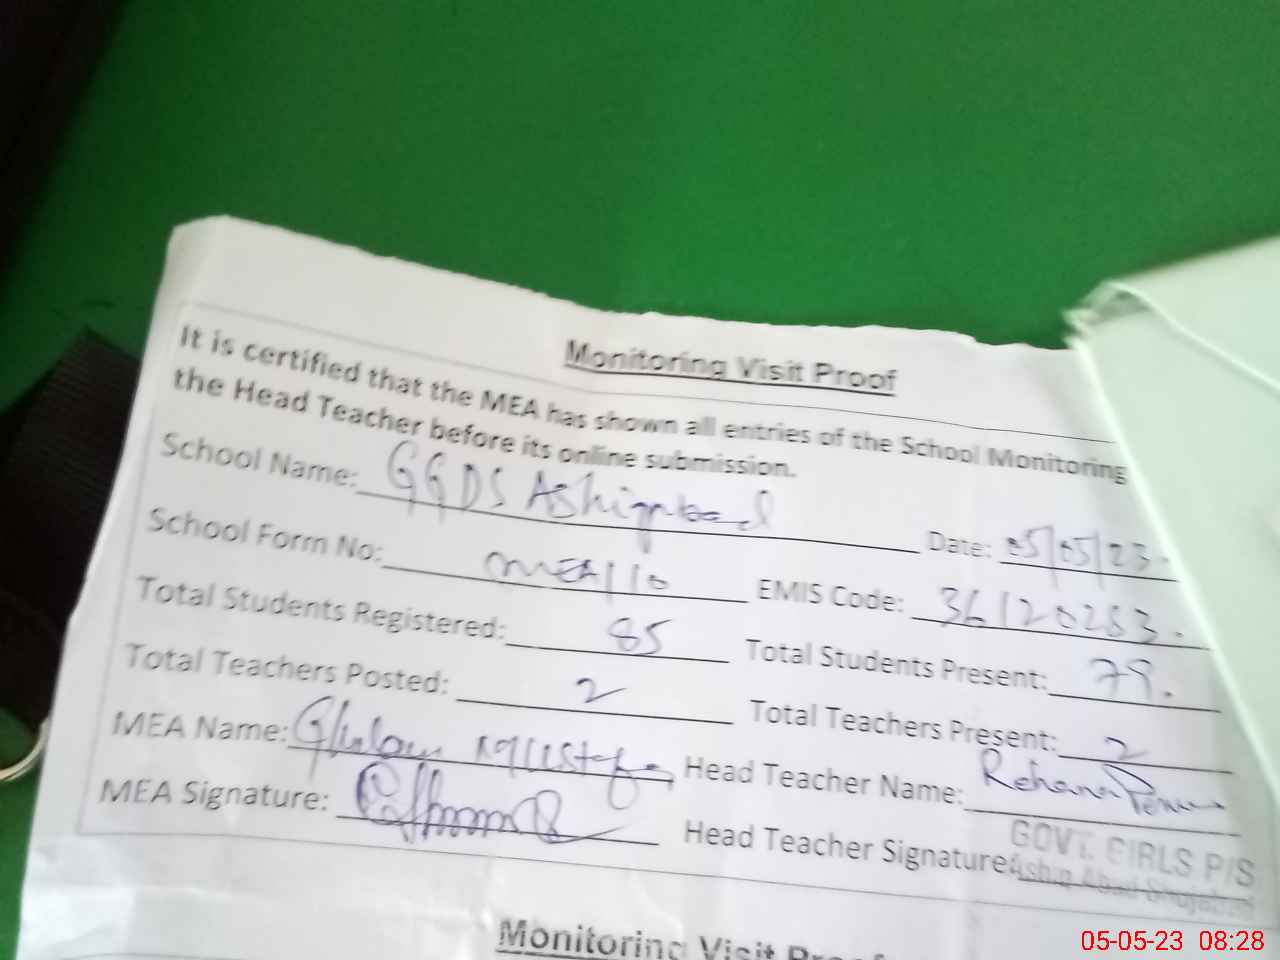 Monitoring Visit Proof
It is certified that the MEA has shown all entries of the School Monitoring
the Head Teacher before its online submission.
School Name: Date: 05/05/23.
School Form No: MEA110 EMIS Code: 36120253.
Total Students Registered: 85 Total Students Present: 79.
Total Teachers Posted: 2 Total Teachers Present: 2
MEA Name: Ghulam Mustafa Head Teacher Name: Rehana
MEA Signature: Head Teacher Signature:
GOVT. GIRLS P/S
Monitoring Visit Proof
05-05-23 08:28